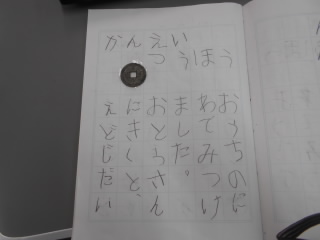 かんえい
つうほう
おうちのに
わでみつけ
ました。
おとうさん
にきくと、
えどじだい